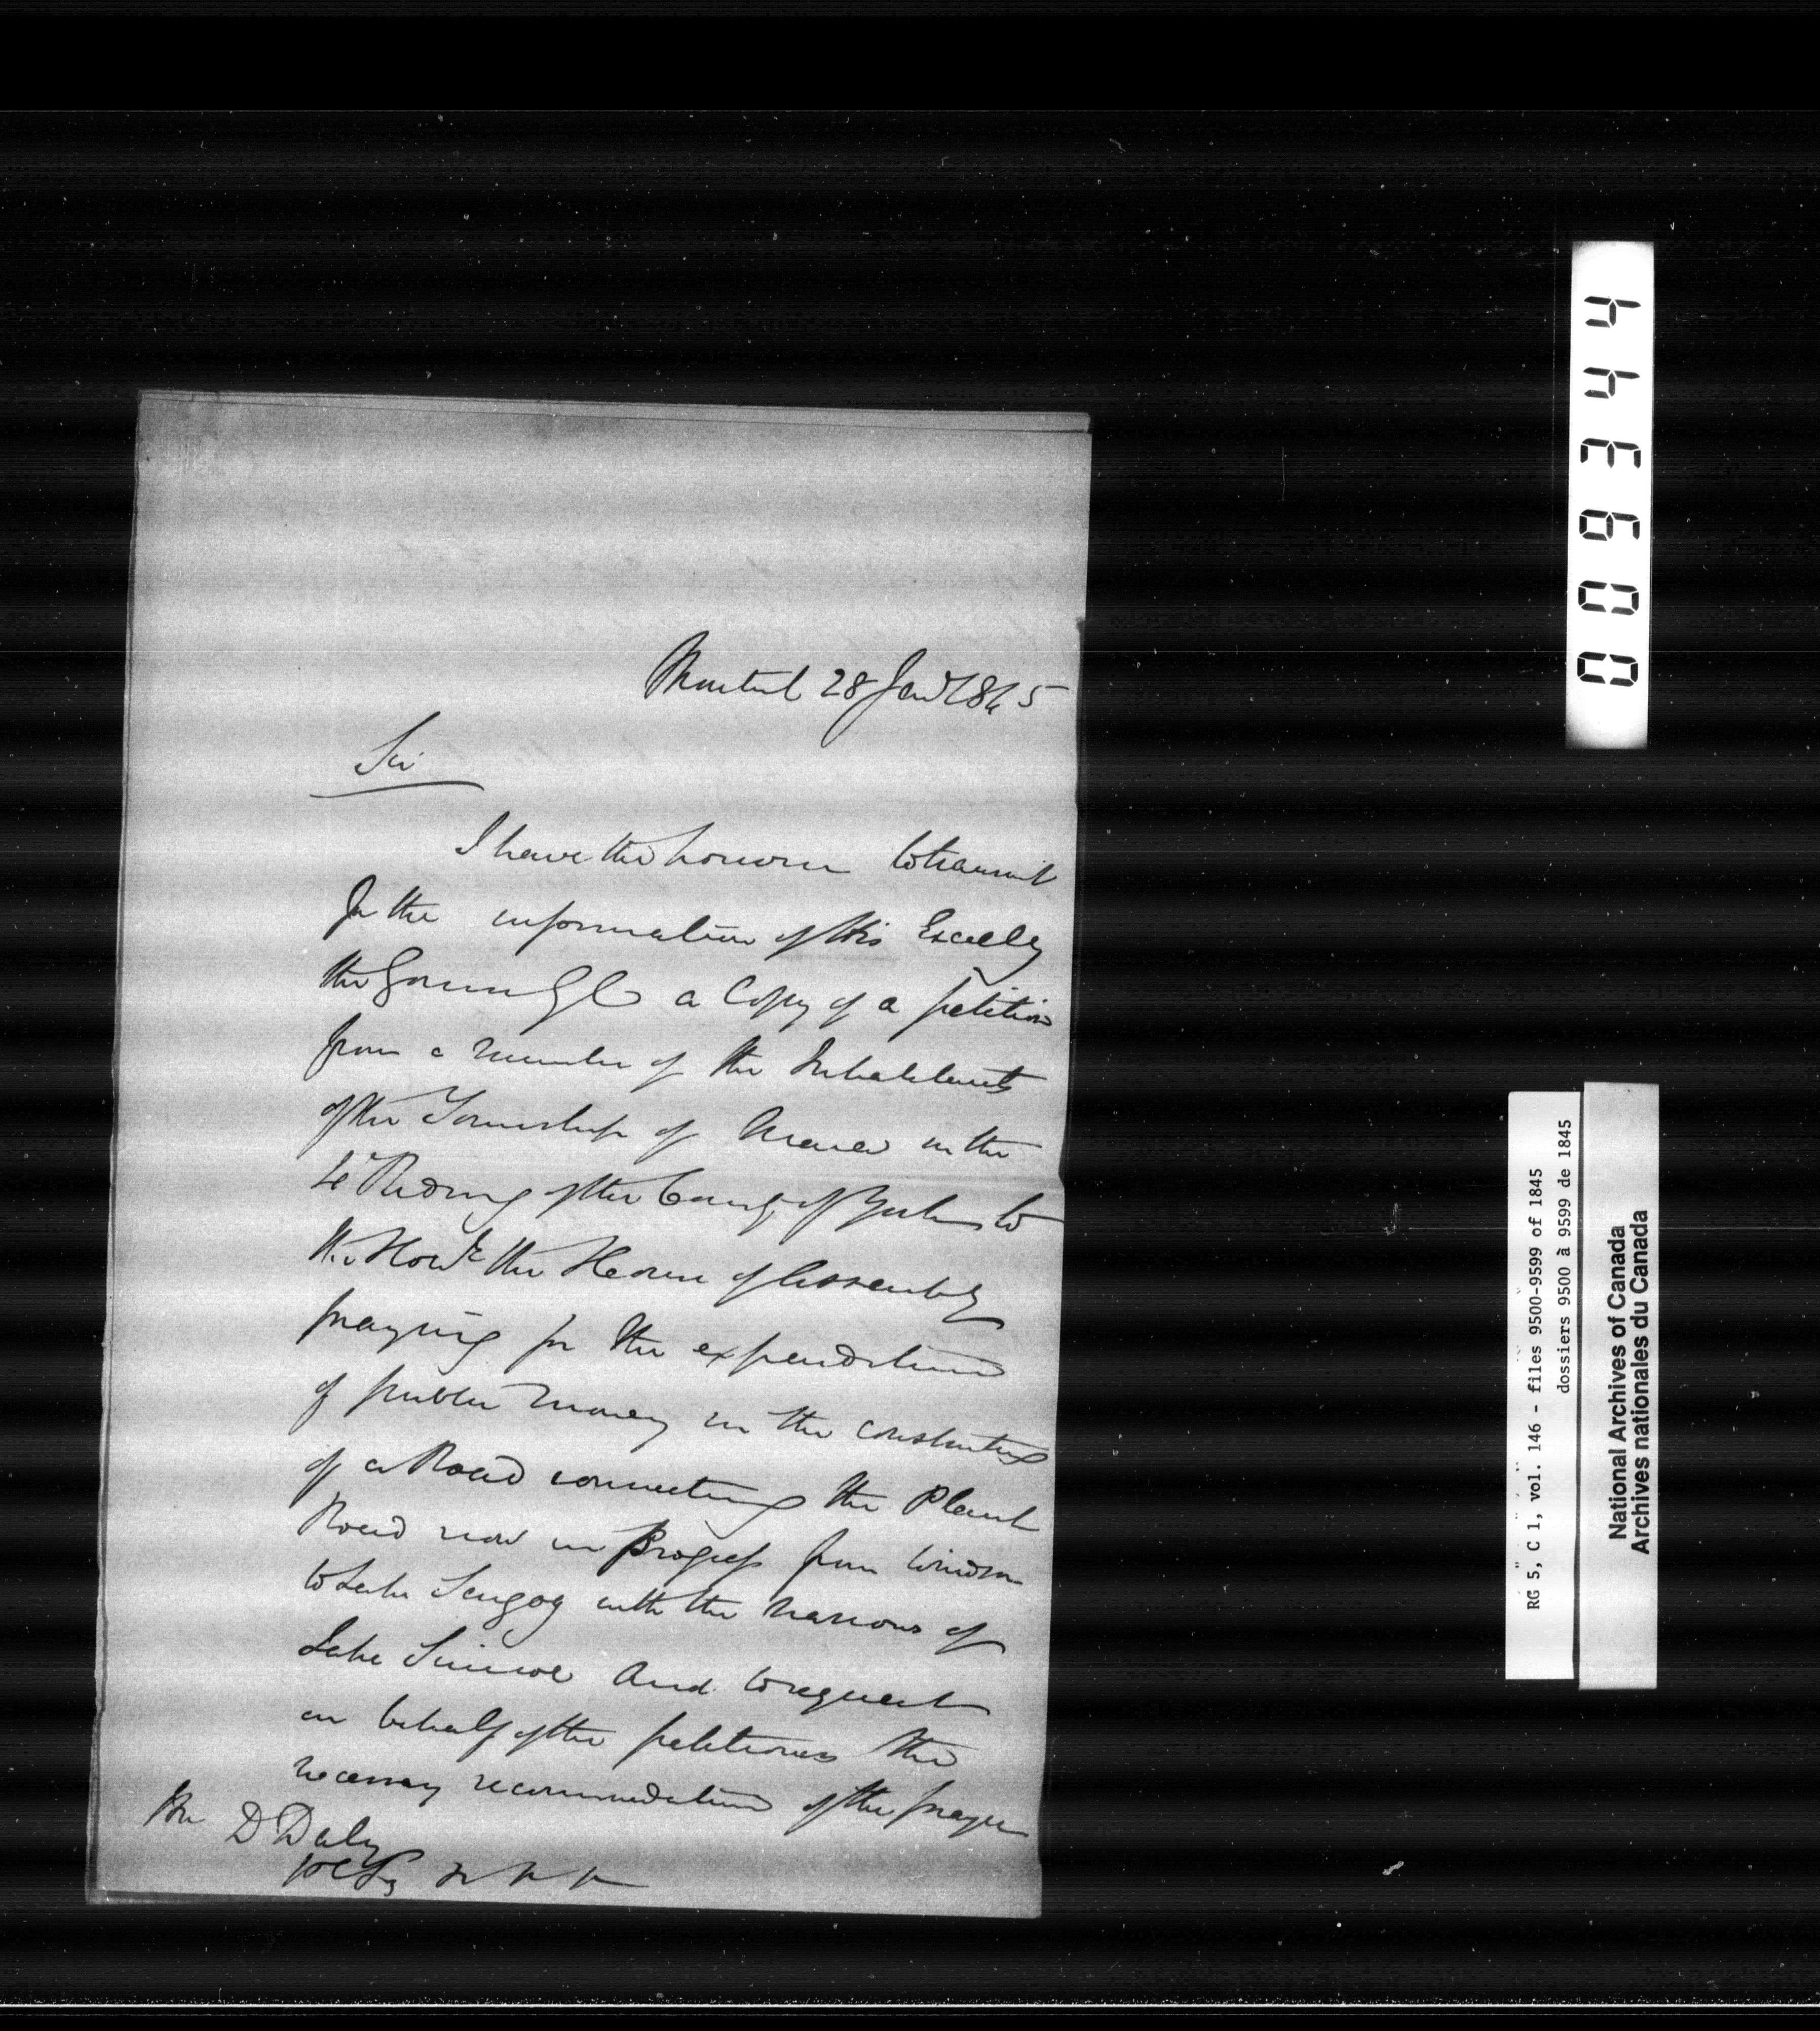 Montreal 28 Jany 1845
Sir
I have the honour to transmit
for the information of His Excelly
the Governor Gl a Copy of a petition
from a number of the Inhabitants
of the Township of Mara in the
4th Riding of the County of York to
the Honble the House of Assembly
praying for the expenditure
of public money in the construction
of a Road connecting the Plank
Road now in progress from Windsor
to Lake Scugog with the narrows of
Lake Simcoe and to request
on behalf of the petitioners the
necessary recommendation of the prayer
Hon D Daly
009344
RG 5, C 1, vol. 146 - files 9500-9599 of 1845
dossiers 9500 à 9599 de 1845
National Archives of Canada
Archives nationales du Canada